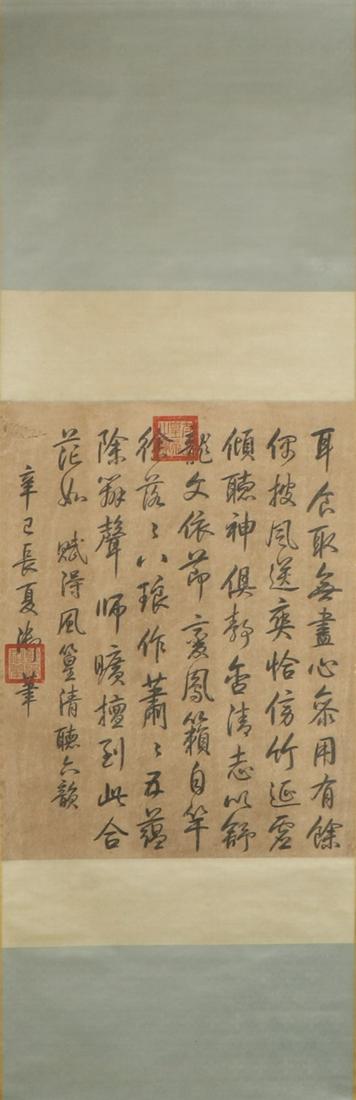 耳食取無盡心參用有餘
偶披風送爽恰傍竹延虛
傾聽神俱靜含清志以舒
龍文依節變鳳籟自竿
徐落〻八琅作蕭〻五蘊
除辨聲師曠擅到此合
茫如 賦得風篁清聽六韻
辛巳長夏御筆